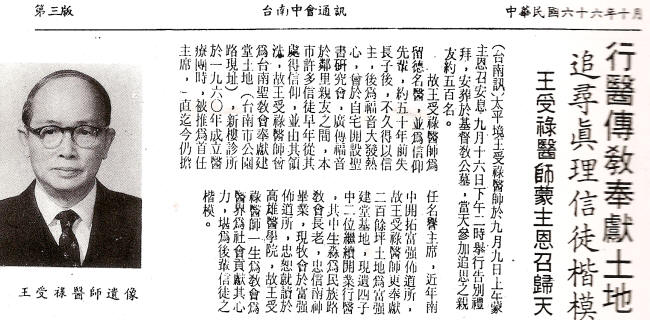 第三版
台南中會通訊
中華民國六十六年十月
行醫傳教奉獻土地
追尋眞理信徒楷模
王受祿醫師蒙主恩召歸天
(台南訊)太平境王受祿醫師於九月九日上午蒙
主恩召安息,九月十六日下午二時舉行告別禮
拜,安葬於基督教公墓,當天參加追思之親
友約五百名。
故王受祿醫師爲
留德名醫,並爲信仰
先輩,約五十年前失
長子後,不久得以信
主,後爲福音大發熱
心,曾於自宅開設聖
書研究會,廣傳福音
於鄰里親友之間,本
市許多信徒早年從其
處得信仰,並由其領
洗,故王受祿醫師會
爲台南聖教會奉獻建
堂土地(台南市公園
路現址),新樓診所
於一九六○年成立醫
療團時,被推爲首任
主席,一直迄今仍擔
任名譽主席,近年南
中開拓富強佈道所,
故王受祿醫師更奉獻
二百餘坪土地爲富強
建堂基地,現遺四子
中二位繼續開業行醫
,其中生淼爲民族路
教會長老,忠信南神
畢業,現牧會於富強
佈道所,忠恕就讀於
高雄醫學院,故王受
祿醫師一生爲教會爲
醫界爲社會貢獻其心
力,堪爲後輩信徒之
楷模。
王受祿醫師遺像